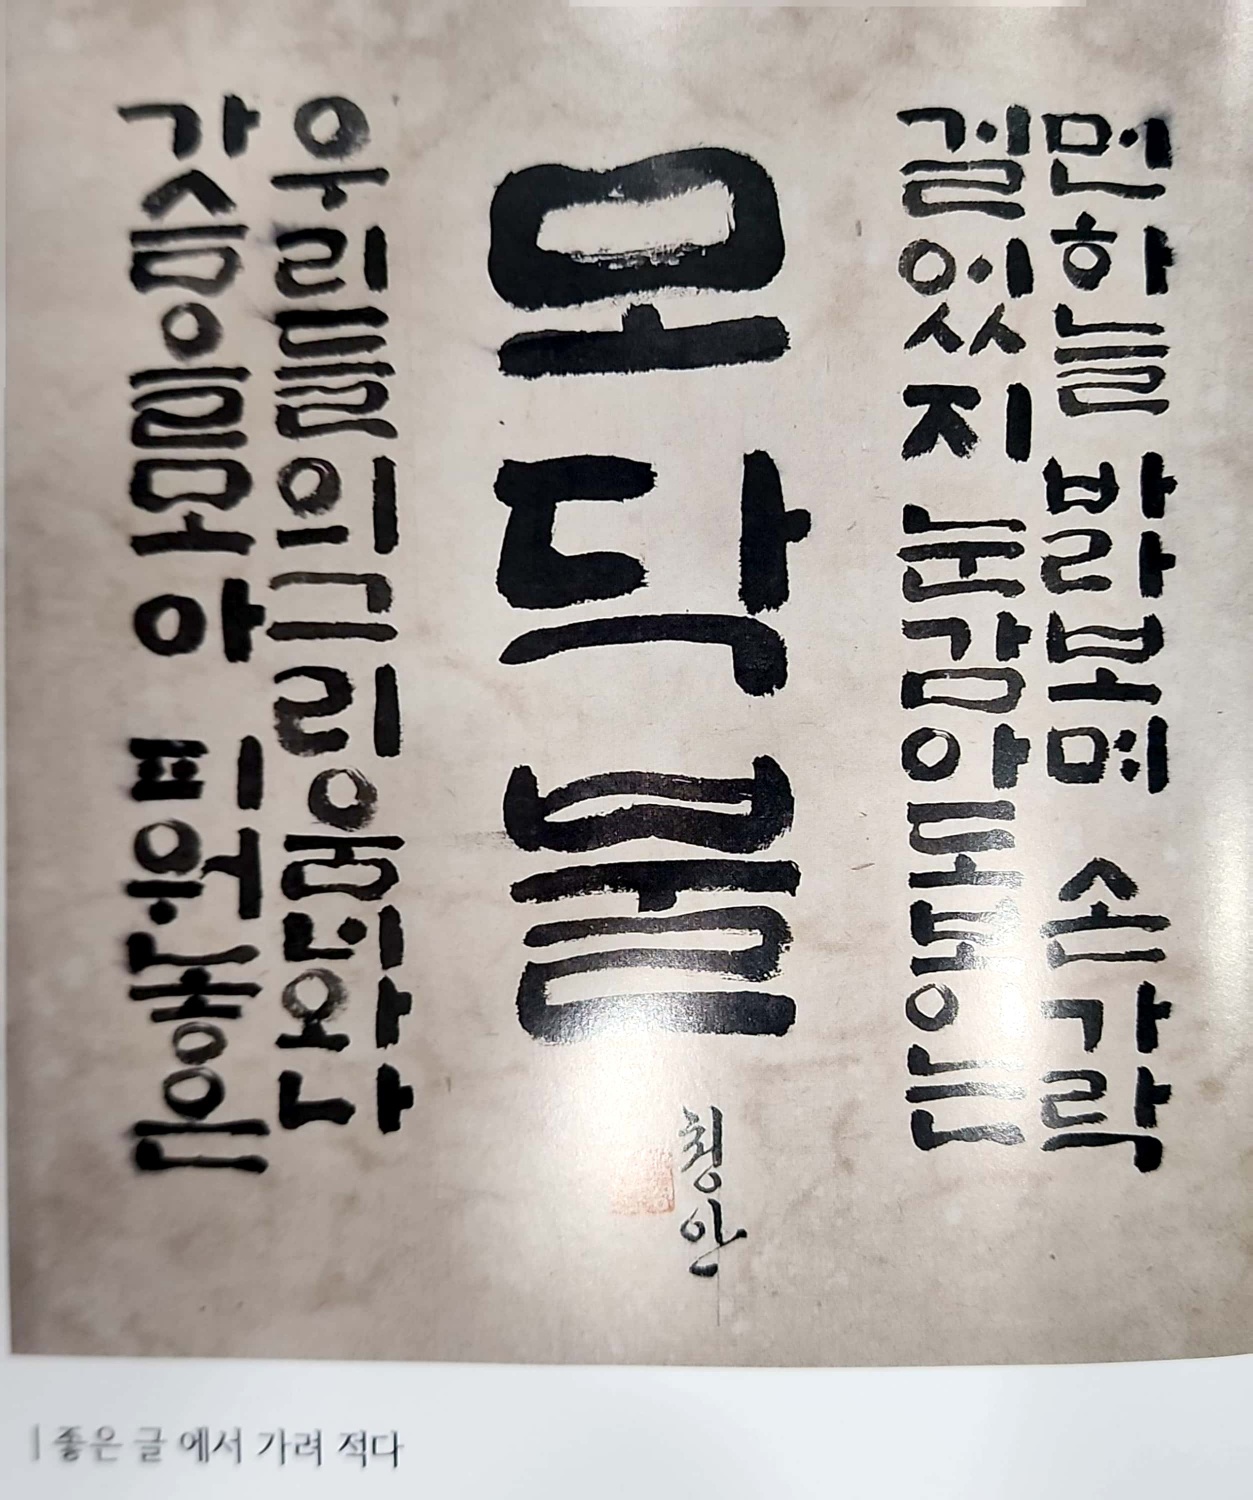 먼하늘 바라보며 손가락
걸었지 눈감아도보이는
모닥불
청안
우리들의그리움너와나
가슴을모아 피워놓은
좋은 글 에서 가려 적다